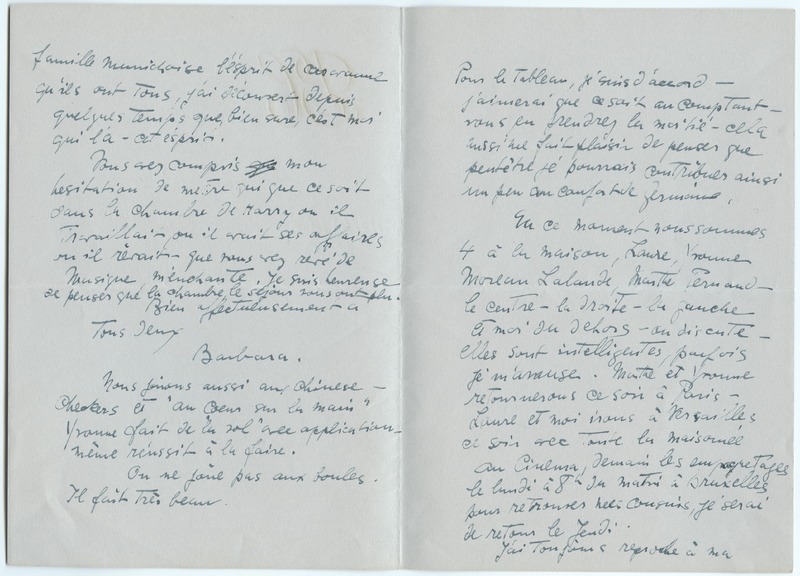 Pour le tableau, je suis d'accord —
j'aimerai que ce soit au comptant —
vous en prendrez la moitié — cela
aussi me fait plaisir de penser que
peutêtre je pourrais contribuer ainsi
un peu au confort de Germaine.
En ce moment nous sommes
4 à la maison, Laure, Yvonne
Moreau Lalande, Marthe Pernand —
le centre — la droite — la gauche
Et moi du dehors — on discute —
elles sont intelligentes, parfois
je m'arrange. Marthe et Yvonne
retournerons ce soir à Paris —
Laure et moi irons à Versailles
ce soir avec toute la maisonée
au Cinema, demain les empaquetages
le lundi à 8h du matin à Bruxelles
pour retrouver mes cousins, je serai
de retour le Jeudi.
J'ai toujours reproché à ma
famille munichoise l'ésprit de caravane
qu'ils ont tous, j'ai découvert depuis
quelques temps que, bien sure, c'est moi
qui l'a — cet ésprit.
Vous avez compris mon
hesitation de metre qui que ce soit
dans la chambre de Harry ou il
travaillait ou il avait ses affaires
ou il rêvait — que vous avez revé de
Musique m'enchante. Je suis heureuse
de penser que la chambre, le séjour vous ont plu.
Bien affectueusement à
Tous deux
Barbara.
Nous jouons aussi aux chinese —
checkers et "au coeur sur la main"
Yvonne fait de la "vol" avec application —
même réussit à la faire.
On ne joue pas aux boules.
Il fait très beau.